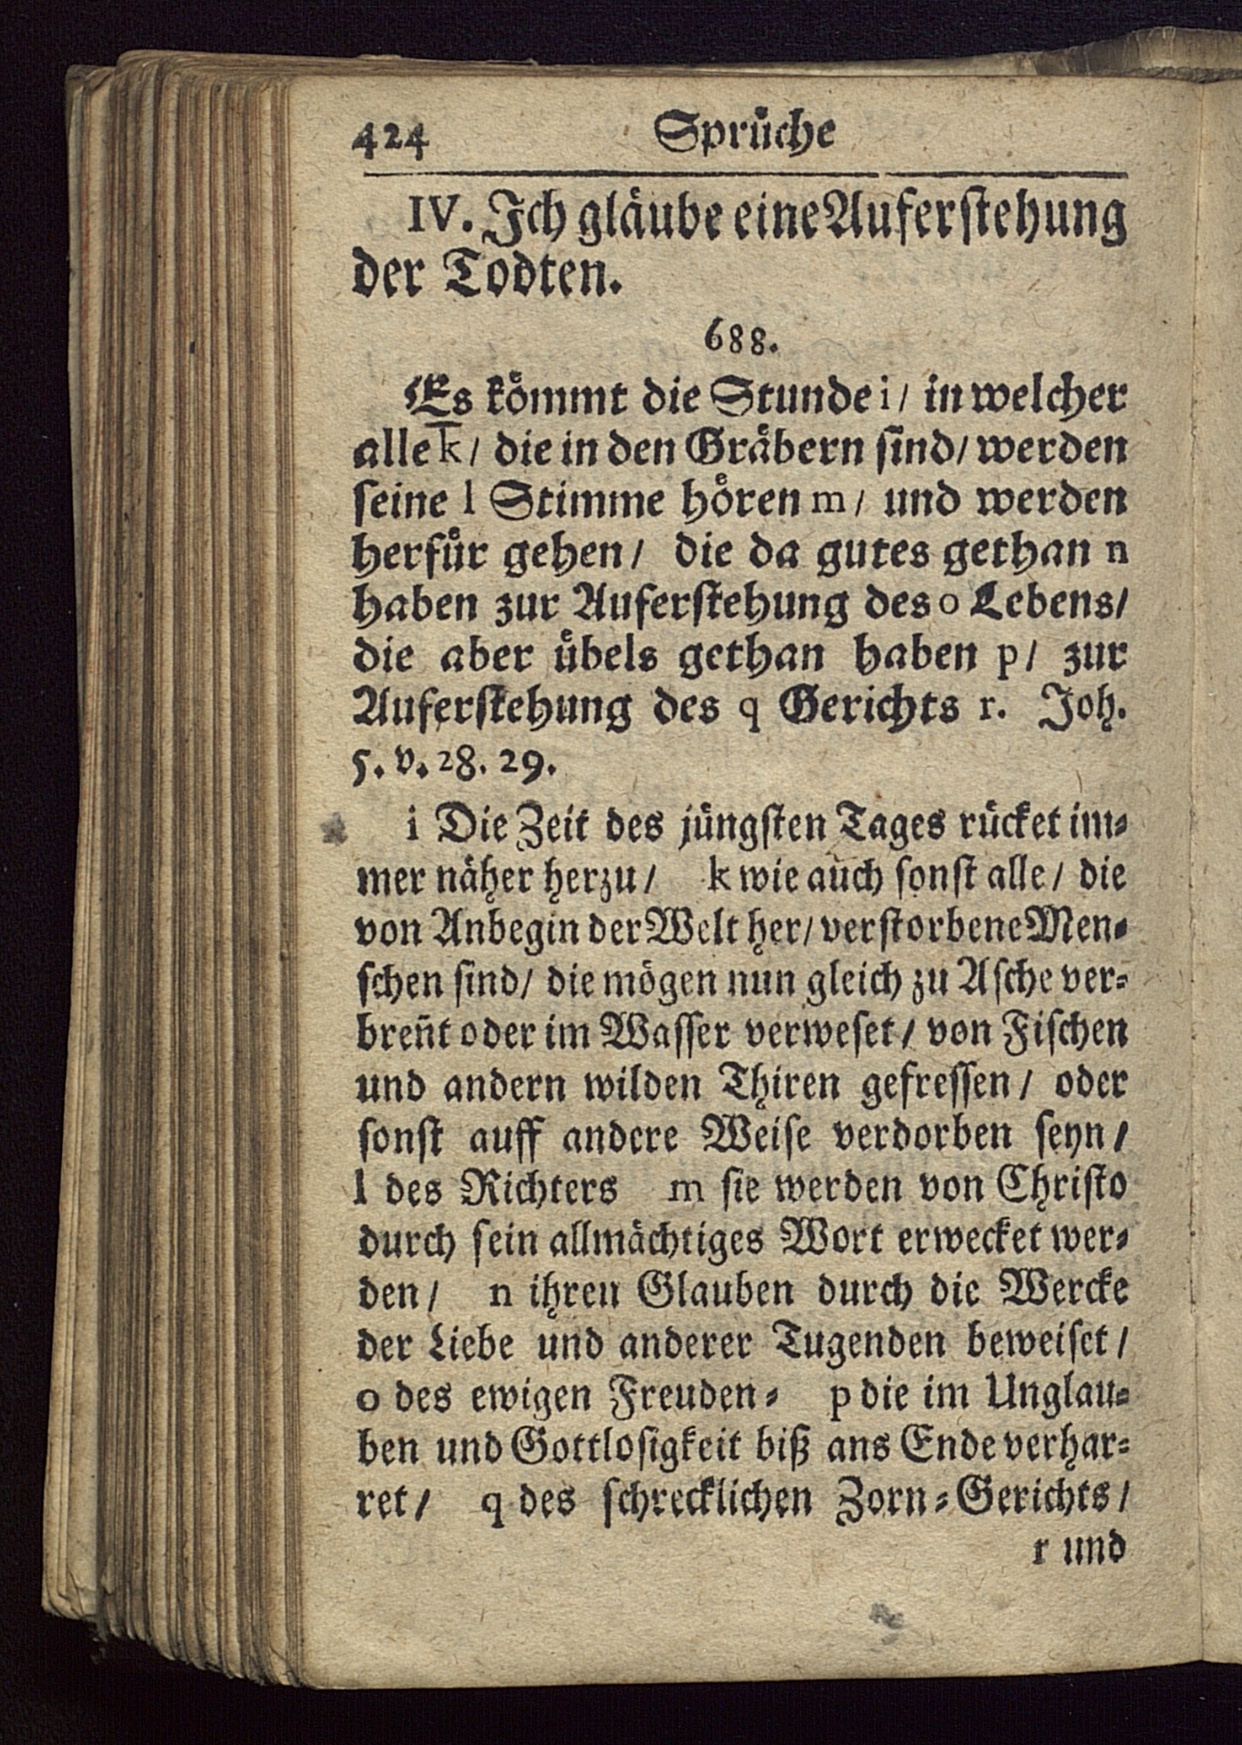 424 Sprüche
IV. Ich gläube eine Auferstehung
der Todten.
688.
Es kömmt die Stunde i/ in welcher
alle k/ die in den Gräbern sind/ werden
seine l Stimme hören m/ und werden
herfür gehen/ die da gutes gethan n
haben zur Auferstehung des o Lebens/
die aber übels gethan haben p/ zur
Auferstehung des q Gerichts r. Joh.
5. v. 28. 29.
i Die Zeit des jüngsten Tages rücket im-
mer näher herzu/ k wie auch sonst alle/ die
von Anbegin der Welt her/ verstorbene Men-
schen sind/ die mögen nun gleich zu Asche ver-
breñt oder im Wasser verweset/ von Fischen
und andern wilden Thiren gefressen/ oder
sonst auff andere Weise verdorben seyn/
l des Richters m sie werden von Christo
durch sein allmächtiges Wort erwecket wer-
den/ n ihren Glauben durch die Wercke
der Liebe und anderer Tugenden beweiset/
o des ewigen Freuden- p die im Unglau-
ben und Gottlosigkeit biß ans Ende verhar-
ret/ q des schrecklichen Zorn-Gerichts/
r und